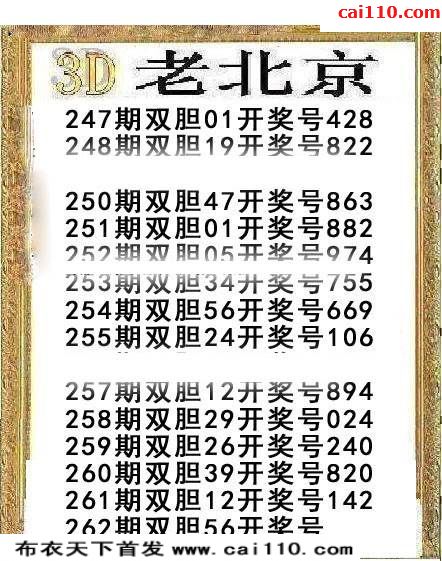 cai110.com
3D 老北京
247期双胆01开奖号428
248期双胆19开奖号822
250期双胆47开奖号863
251期双胆01开奖号882
252期双胆05开奖号974
253期双胆34开奖号755
254期双胆56开奖号669
255期双胆24开奖号106
257期双胆12开奖号894
258期双胆29开奖号024
259期双胆26开奖号240
260期双胆39开奖号820
261期双胆12开奖号142
262期双胆56开奖号
布衣天下首发 www.cai110.com